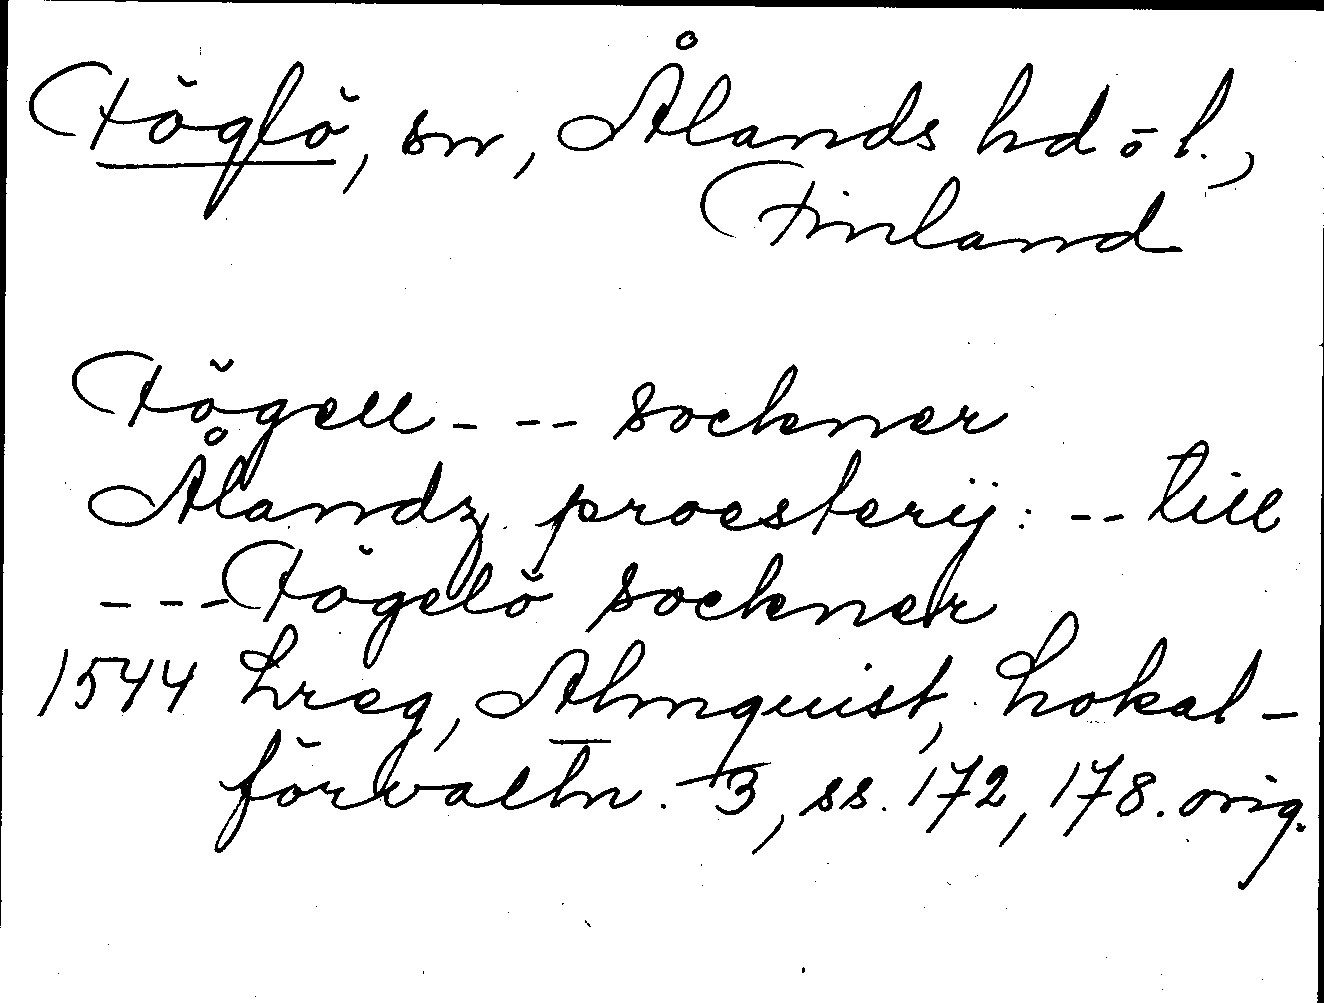 Föglö, sn, Ålands hd o l.,
Finland
Fögell - -- sockner
Ålandz proesterij: -- till
--- Fögelö sockner
1544 Lreg, Almquist, Lokal-
förvaltn. 3, ss. 172, 178. orig.